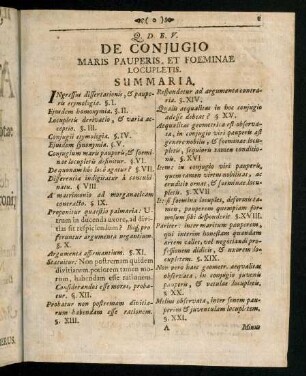 Q. D. B. V.
DE CONJUGIO
MARIS PAUPERIS, ET FOEMINAE
LOCUPLETIS.
SUMMARIA,
INgressus dissertationis, & paupe-
ris etymologia. §. I.
Ejusdem homonymia. §. II.
Locupletis derivatio, & varia ac-
ceptio. §. III.
Conjugii etymologia. §. IV.
Ejusdem synonymia. §. V.
Conjugium maris pauperis, & foemi-
nae locupletis definitur. §. VI.
De quonam hîc loci agatur? §. VII.
Differentia indigitatur à concubi-
natu. § VIII
A matrimonio ad morganaticam
contracto. §. IX.
Proponitur quaestio palmaria: U-
trum in ducenda uxore, ad divi-
tias sit respiciendum?
proferuntur argumenta negantium.
§. X.
Argumenta affirmantium. §. XI.
Statuitur: Non postremam quidem
divitiarum, posteriorem tamen mo-
rum, habendam esse rationem.
Considerandos esse mores, proba-
tur. §. XII.
Probatur non postremam divitia-
rum habendam esse rationem.
§. XIII.
Respondetur ad argumenta contra-
ria. §. XIV.
Qualis aequalitas in hoc conjugio
adesse debeat? §. XV.
Aequalitas geometrica est observa-
ta, in conjugio viri pauperis est
genere nobilis, & foeminae locu-
pletis, sequioris tamen conditio-
nis. §. XVI
Item: in conjugio viri pauperis,
quem tamen virtus nobilitat, ac
eruditio ornat, & foeminae locu-
pletis. §. XVII
Et si foemina locuples, deformis ta-
men, pauperem quempiam for-
mosum sibi desponderit. §. XVIII.
Pariter: inter maritum pauperem,
qui interim honestam quandam
artem callet, vel negotiandi pro-
fessionem didicit, & uxorem lo-
cupletem. §. XIX.
Non porrò haec geometr. aequalitas
observata, in conjugio juvenis
pauperis, & vetulae locupletis.
§. XX.
Melius observata, inter senem pau-
perem & juvenculam locupletem.
§. XXI.
A
Minùs